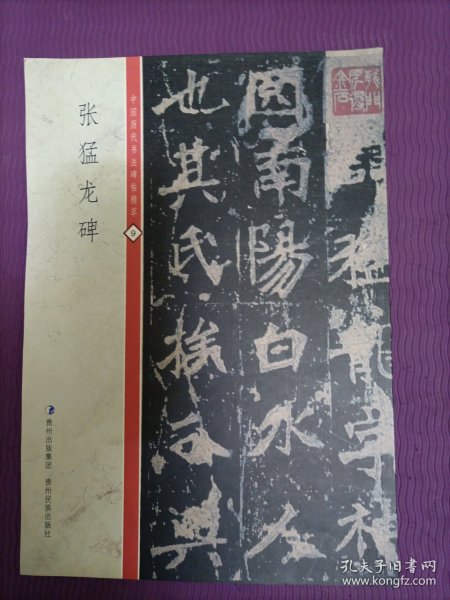 张猛龙碑
中国历代书法碑帖精萃
9
贵州出版集团 贵州民族出版社
猛龍字神
囶南陽白水人
也其氏族分興
孔夫子旧书网
www.kongfz.com